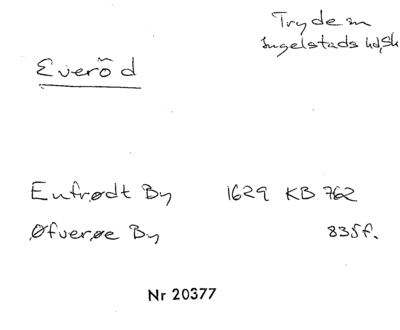 Tryde sn
Ingelstads hd, Sk
Everöd
Eufrødt By 1629 KB 762
Øfuerøe By 835f.
Nr 20377